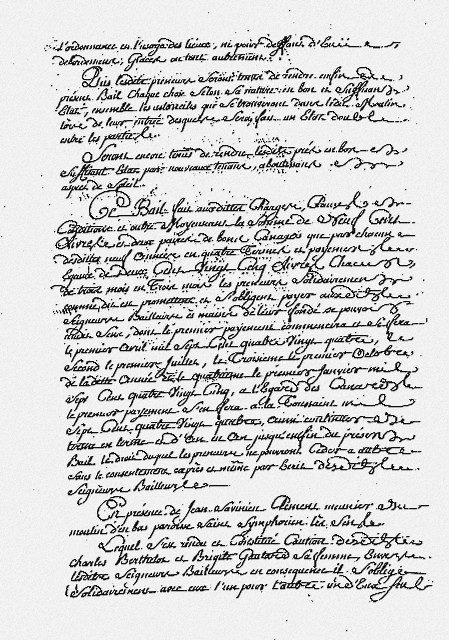 L'ordonnance et l'usage des lieux, ni pour deffaut d'Eau
debordement, Glaces ou tout autrement.
Plus lesdits preneurs seront tenus de rendre enfin
present Bail chaque chose selon sa nature en bon et suffisant
Etat, ensemble les ustenciles qui se trouveront dans ledit Moulin
lors de leur entrée desquels sera fait un Etat double
entre les parties
Seront encore tenus de rendre lesdits prés en bon
suffisant Etat par nouveaux tenans, aboutissans
aspect de Soleil.
Ce Bail fait auxdittes Charges, Clauses
Conditions et outre Moyennant la somme de Neuf Cent
Livres et deux paires de bons Canards que par chacune
desdittes neuf années en quatre Termes et payemens
Egaux de Deux Cent Vingt Cinq Livres Chacun,
de trois mois en trois mois les preneurs solidairement
comme dit est promettent et s'obligent payer auxdits
Seigneurs Bailleurs en mains de leur fondé de pouvoir
dont le premier payement commencera et se fera
le premier Avril mil sept Cent quatre Vingt quatre, le
second le premier Juillet, le Troisieme le premier Octobre
de laditte année et le quatrieme le premier Janvier mil
sept Cent quatre Vingt Cinq, a l'Egard des Canards
le premier payement s'en fera a la Toussaint mil
sept Cent quatre Vingt quatre, ainsi continuer
terme en terme et d'an en an jusqu'enfin du présent
Bail le droit duquel les preneurs ne pourront Ceder a autre
sans le consentement exprès et même par écrit desdits
Seigneurs Bailleurs
En presence de Jean Savinien Clement meunier
moulin d'en bas paroisse Saint Symphorien lès Sens
Lequel s'est rendu et Constitué Caution desdits
Charles Berthelot et Brigite sa femme, Envers
lesdits Seigneurs Bailleurs en consequence il s'oblige
solidairement avec eux l'un pour l'autre un d'Eux seul